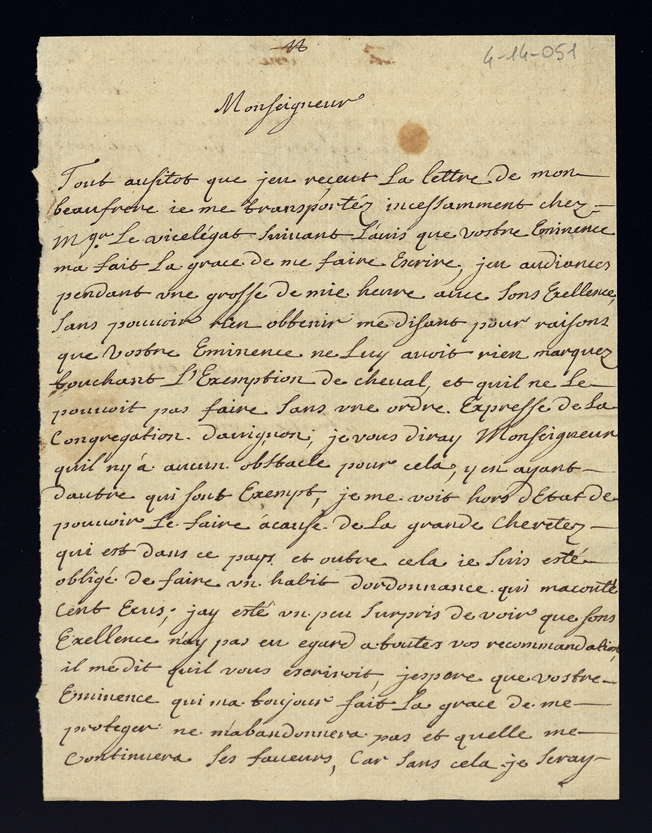 4-14-051
Monseigneur
Tout ausitot que jeu reçeut La lettre de mon
beaufrere ie me transportéz incessamment chez
Mgr. Le vicelégat Suivant L'auis que vostre Eminence
ma fait La grace de me faire Escrire, jeu audiances
pendant vne grosse de mie heure auec Sons Exellence,
Sans pouvoir rien obtenir me disant pour raisons
que Vostre Eminence ne Luy auoit rien marquez
touchant L'Exemption de cheval, et quil ne Le
pouuoit pas faire Sans vne ordre Expresse de La
Congregation d'auignon; je vous diray Monseigneur
quil ny á aucun obstacle pour cela, y en ayant
dautre qui sont Exempt, je me voit hors d'Etat de
pouuoir Le faire ácause de La grande Cheretez
qui est dans ce pays et outre cela ie Suis esté
obligé de faire vn habit dordonnance qui ma couté
Cent Ecus; jay esté vn peu Surpris de voir que sons
Exellence n'ay pas eu egard a toutes vos recommandation
il me dit quil vous escriroit, jespere que vostre
Eminence qui ma toujour fait La grace de me
proteger ne m'abandonnera pas et quelle me
Continuera Ses faueurs, Car Sans cela je Seray